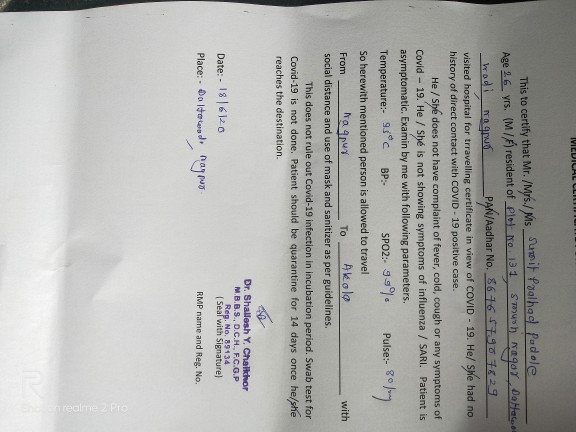 MEDICAL CERTIFICATE
This to certify that Mr. /Mrs./Ms Sumit Pralhad Padole
Age 26 yrs. (M / F) resident of Plot No 131, Smruti nagar, Dattawadi
wadi, nagpur PAN/Aadhar No. 8676 5796 7829
visited hospital for travelling certificate in view of COVID - 19. He/ She had no
history of direct contact with COVID - 19 positive case.
He / She does not have complaint of fever, cold, cough or any symptoms of
Covid – 19. He / She is not showing symptoms of influenza / SARI. Patient is
asymptomatic. Examin by me with following parameters.
Temperature:- 95°C BP:- SPO2:- 99% Pulse:- 80/
So herewith mentioned person is allowed to travel
From Nagpur To Akola with
social distance and use of mask and sanitizer as per guidelines.
This does not rule out Covid-19 infection in incubation period. Swab test for
Covid-19 is not done. Patient should be quarantine for 14 days once he/she
reaches the destination.
Dr. Shailesh Y. Chalkhor
M.B.B.S., D.C.H., F.C.G.P
Reg. No. 89134
( Seal with Signature)
Date: - 18/6/20
Place: - Dattawadi, nagpur
RMP name and Reg. No.
Shot on realme 2 Pro